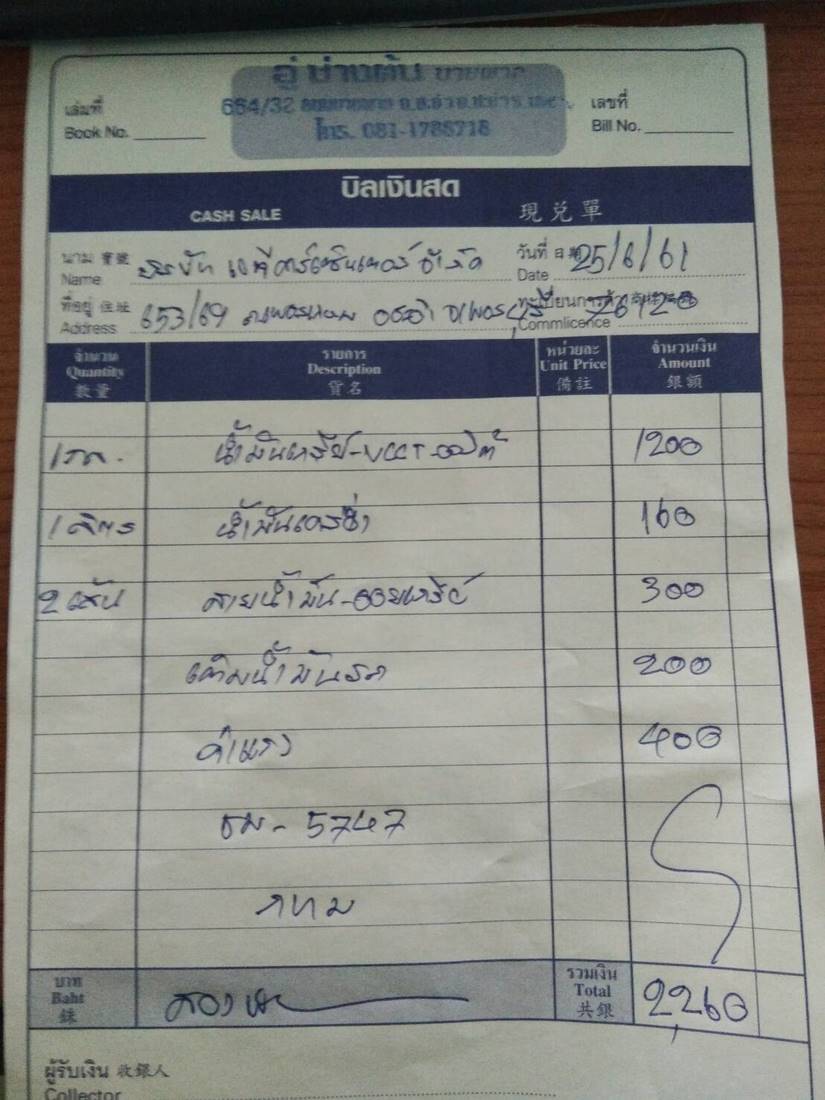 อู่ ช่างต้น
เล่มที่ 654/32 เลขที่
Book No. โทร. 081-1786718 Bill No.
บิลเงินสด
CASH SALE 現兌單
นาม 寶號 บริษัท เอทีคาร์เซ็นเตอร์ จำกัด วันที่ 日期 25/6/61
Name Date
ที่อยู่ 住址 653/69 ทะเบียนการค้า 10120
Address Commlicence
จำนวน รายการ หน่วยละ จำนวนเงิน
Quantity Description Unit Price Amount
數量 貨名 備註 銀額
น้ำมันเครื่อง 1200
1 ลิตร น้ำมัน 160
2 เส้น สายน้ำมัน-ออย 300
เติมน้ำมันรถ 200
ค่าแรง 400
5747
กทม
บาท รวมเงิน
Baht Total 2,260
銖 共銀
ผู้รับเงิน 收銀人
Collector